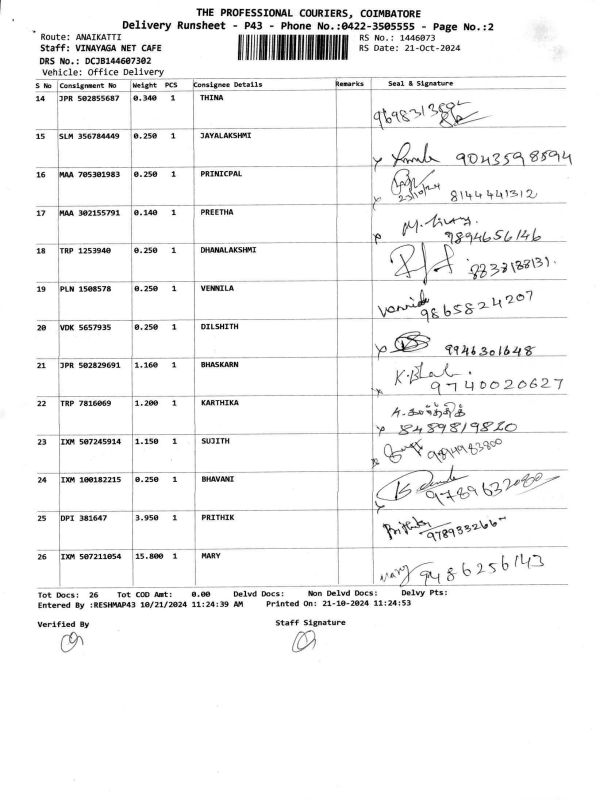 THE PROFESSIONAL COURIERS, COIMBATORE
Delivery Runsheet - P43 - Phone No.:0422-3505555 - Page No.:2
Route: ANAIKATTI RS No.: 1446073
Staff: VINAYAGA NET CAFE RS Date: 21-Oct-2024
DRS No.: DCJB144607302
Vehicle: Office Delivery
S No Consignment No Weight PCS Consignee Details Remarks Seal & Signature
14 JPR 502855687 0.340 1 THINA
15 SLM 356784449 0.250 1 JAYALAKSHMI 9043598594
16 MAA 705301983 0.250 1 PRINICPAL 23/10/24 8144441312
17 MAA 302155791 0.140 1 PREETHA 9894656146
18 TRP 1253940 0.250 1 DHANALAKSHMI
19 PLN 1508578 0.250 1 VENNILA 9865824207
20 VDK 5657935 0.250 1 DILSHITH 9946301648
21 JPR 502829691 1.160 1 BHASKARN 9740020627
22 TRP 7816069 1.200 1 KARTHIKA 8489819820
23 IXM 507245914 1.150 1 SUJITH
24 IXM 100182215 0.250 1 BHAVANI 9789632080
25 DPI 381647 3.950 1 PRITHIK
26 IXM 507211054 15.800 1 MARY mary 9486256143
Tot Docs: 26 Tot COD Amt: 0.00 Delvd Docs: Non Delvd Docs: Delvy Pts:
Entered By :RESHMAP43 10/21/2024 11:24:39 AM Printed On: 21-10-2024 11:24:53
Verified By Staff Signature